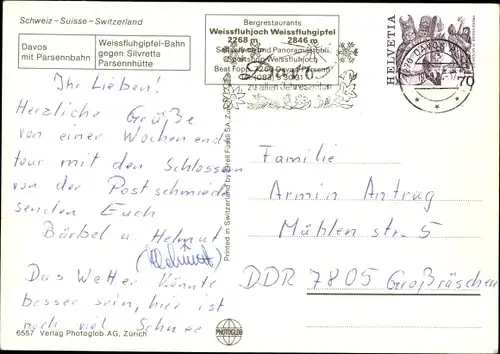 Schweiz - Suisse - Switzerland
Davos
mit Parsennbahn
Weissfluhgipfel-Bahn
gegen Silvretta
Parsennhütte
Bergrestaurants
Weissfluhjoch Weissfluhgipfel
2268 m 2846 m
Selfservice und Panoramastübli
Sportshop Weissfluhjoch
Beat Fopp, 7260 Davos
zu allen Jahreszeiten
HELVETIA
DAVOS
70
Ihr Lieben!
Herzliche Grüße
von einer Wochenend
tour mit den Schlossern
von der Postschmiede
senden Euch
Bärbel u. Helmut
(Helmut)
Das Wetter könnte
besser sein, hier ist
noch viel Schnee
Printed in Switzerland by Orell Füssli SA, Zürich
Familie
Armin Antrag
Mühlen str. 5
DDR 7805 Großräschen
6557 Verlag Photoglob AG, Zürich
PHOTOGLOB